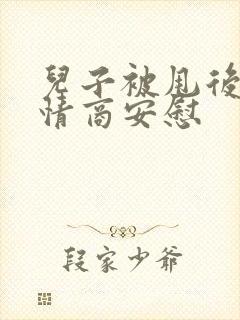 兒子被甩後
情商安慰
段家少爺